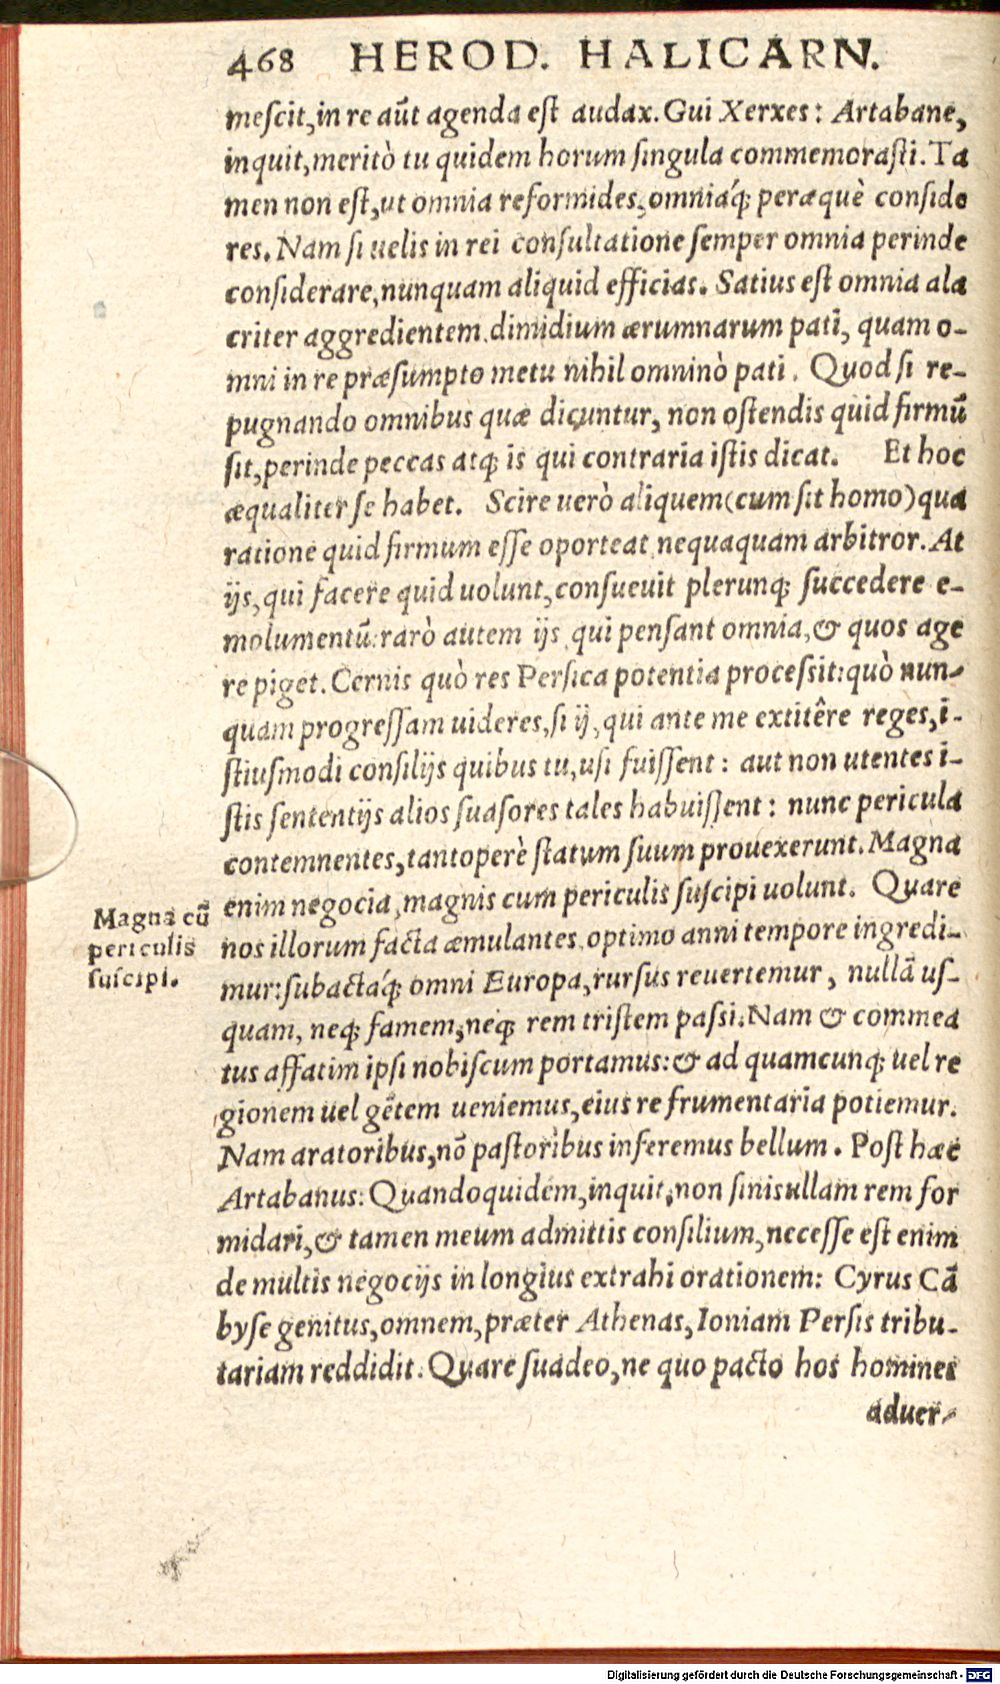 468 HEROD. HALICARN.
meſcit, in re aūt agenda eſt audax. Gui Xerxes: Artabane,
inquit, meritò tu quidem horum ſingula commemoraſti. Ta
men non eſt, ut omnia reformides, omniaq́; peræquè conſide
res. Nam ſi uelis in rei conſultatione ſemper omnia perinde
conſiderare, nunquam aliquid efficias. Satius eſt omnia ala
criter aggredientem dimidium ærumnarum pati, quam o-
mni in re præſumpto metu nihil omninò pati. Quod ſi re-
pugnando omnibus quæ dicuntur, non oſtendis quid firmū
ſit, perinde peccas atq; is qui contraria iſtis dicat. Et hoc
æqualiter ſe habet. Scire uerò aliquem (cum ſit homo) qua
ratione quid firmum eſſe oporteat nequaquam arbitror. At
ijs, qui facere quid uolunt, conſueuit plerunq; ſuccedere e-
molumentū: rarò autem ijs qui penſant omnia, & quos age
re piget. Cernis quò res Perſica potentia proceſsit: quò nun-
quam progreſſam uideres, ſi ij, qui ante me extitêre reges, i-
ſtiuſmodi conſilijs quibus tu, uſi fuiſſent: aut non utentes i-
ſtis ſententijs alios ſuaſores tales habuiſſent: nunc pericula
contemnentes, tantoperè ſtatum ſuum prouexerunt. Magna
enim negocia, magnis cum periculis ſuſcipi uolunt. Quare
Magna cū
periculis
ſuſcipi.
nos illorum facta æmulantes, optimo anni tempore ingredi-
mur: ſubactaq́; omni Europa, rurſus reuertemur, nullā uſ-
quam, neq; famem, neq; rem triſtem paſsi. Nam & commea
tus affatim ipſi nobiſcum portamus: & ad quamcunq; uel re
gionem uel gētem ueniemus, eius re frumentaria potiemur.
Nam aratoribus, nō paſtoribus inferemus bellum. Poſt hæc
Artabanus: Quandoquidem, inquit, non ſinis ullam rem for
midari, & tamen meum admittis conſilium, neceſſe eſt enim
de multis negocijs in longius extrahi orationem: Cyrus Cā
byſe genitus, omnem, præter Athenas, Ioniam Perſis tribu-
tariam reddidit. Quare ſuadeo, ne quo pacto hos homines
aduer-
Digitalisierung gefördert durch die Deutsche Forschungsgemeinschaft - DFG